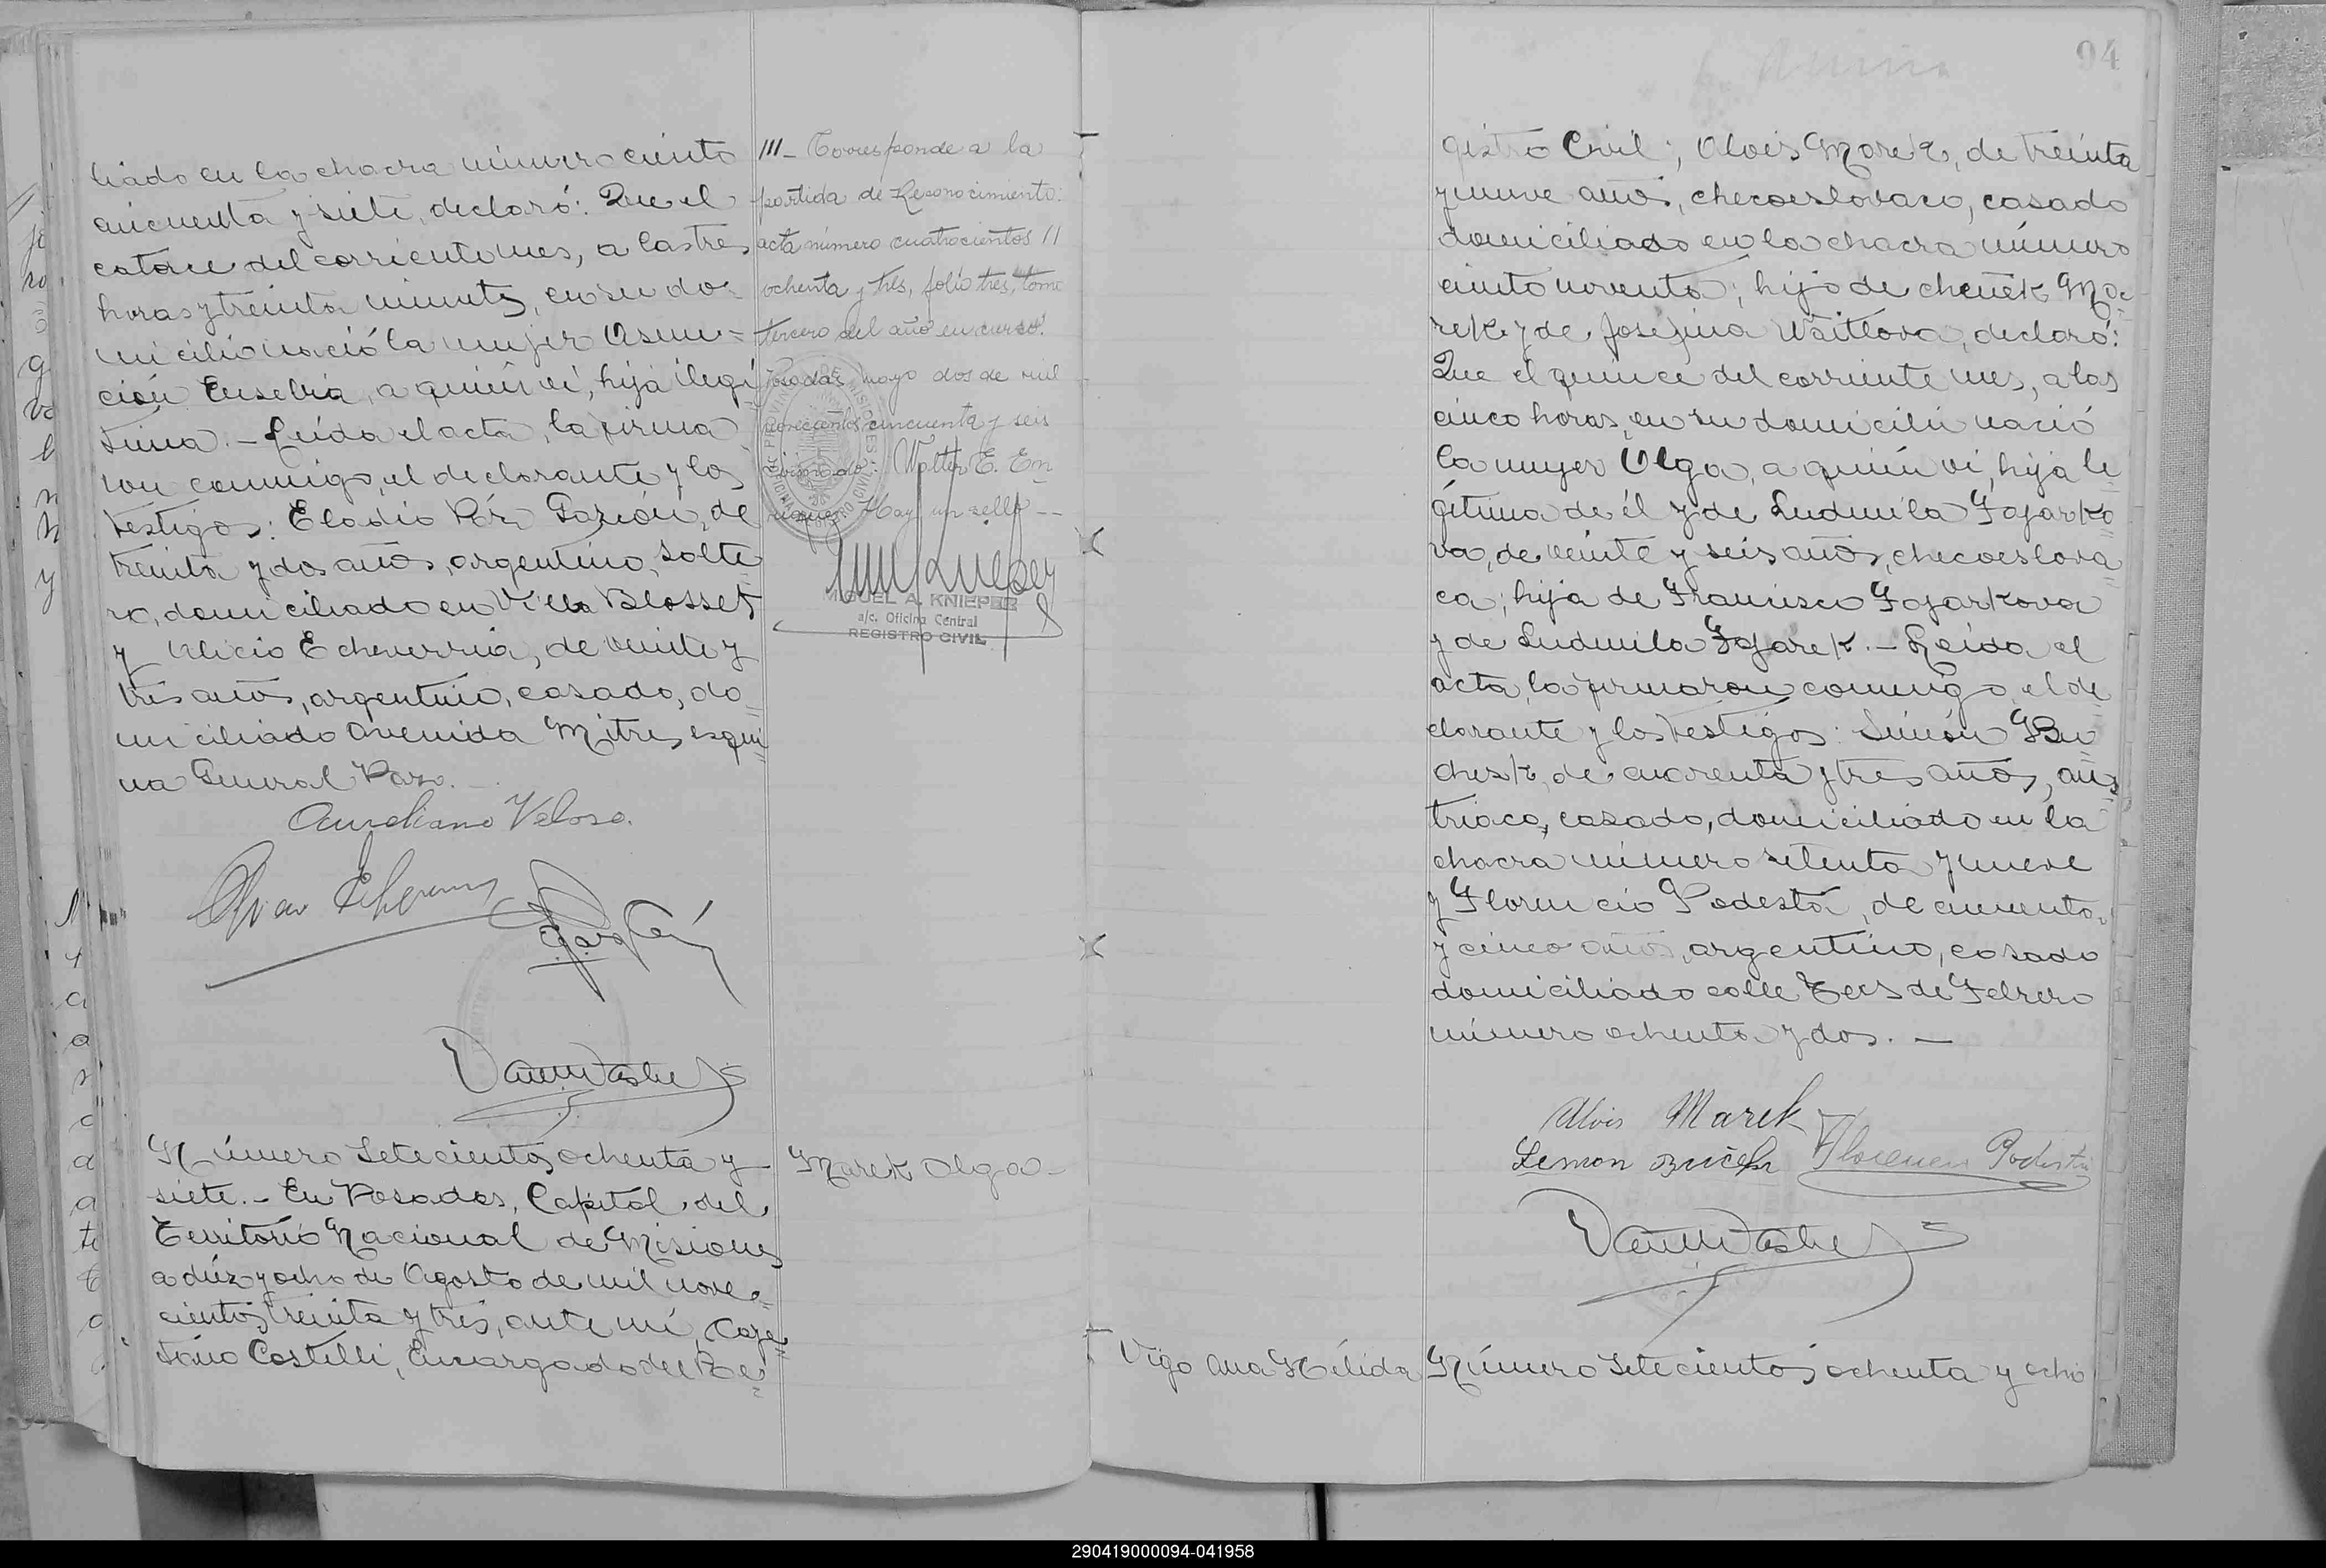 liado en la chacra número ciento
cincuenta y siete, declaró: Que el
catorce del corriente mes, a las tres
horas y treinta minutos, en su do-
micilio nació la mujer Asun=
ción Eusebia, a quién ví, hija ilegí
tima.- Leída el acta, la firma
ron conmigo, el declarante y los
testigos: Eladio Garzón, de
treinta y dos años, argentino, solte
ro, domiciliado en Villa Blosset
y Alicio Echeverria, de veinte y
tres años, argentino, casado, do=
miciliado Avenida Mitre, esqui=
na General Paz.-
Aureliano Veloso.
III- Corresponde a la
partida de Reconocimiento:
acta número cuatrocientos //
ochenta y tres, folio tres, tomo
tercero del año en curso.
Posadas, mayo dos de mil
novecientos cincuenta y seis
Walter E. Em
Hay un sello --
MIGUEL A. KNIEPER
a/c. Oficina Central
REGISTRO CIVIL
Número Setecientos ochenta y
siete.- En Posadas, Capital del
Territorio Nacional de Misiones
a diez y ocho de Agosto de mil nove=
cientos treinta y tres, ante mí, Caye=
tano Castelli, Encargado del Re=
Marek Olga-
94
gistro Civil; Alois Marek, de treinta
y nueve años, checoeslovaco, casado
domiciliado en la chacra número
ciento noventa; hijo de Cheñek Ma=
rek y de Josefina Waitlova, declaró:
Que el quince del corriente mes, a las
cinco horas, en su domicilio nació
la mujer Olga, a quién ví, hija le
gítima de él y de Ludmila Fajarko=
va, de veinte y seis años, checoeslova=
ca; hija de Francisco Fajarkova
y de Ludmila Fajarek.- Leída el
acta, la firmaron conmigo, el de
clarante y los testigos: Simón Bu
chesk, de cuarenta y tres años, aus=
triaco, casado, domiciliado en la
chacra número setenta y nueve
y Florencio Podestá, de cincuenta
y cinco años, argentino, casado
domiciliado calle Tres de Febrero
número ochenta y dos.-
Alois Marek
Florencio Podestá
Vigo Ana Hélida
Número Setecientos ochenta y ocho
290419000094-041958